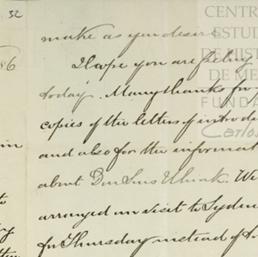 32
make as you desire
86
I hope you are feeling
today. Many thanks for
copies of the letters of introd
and also for the informat
about Don Luis
We
arranged our visit to Sydn
for Thursday instead of
CENTR
ESTU
DE HIST
DE ME
FUNDA
Carlos